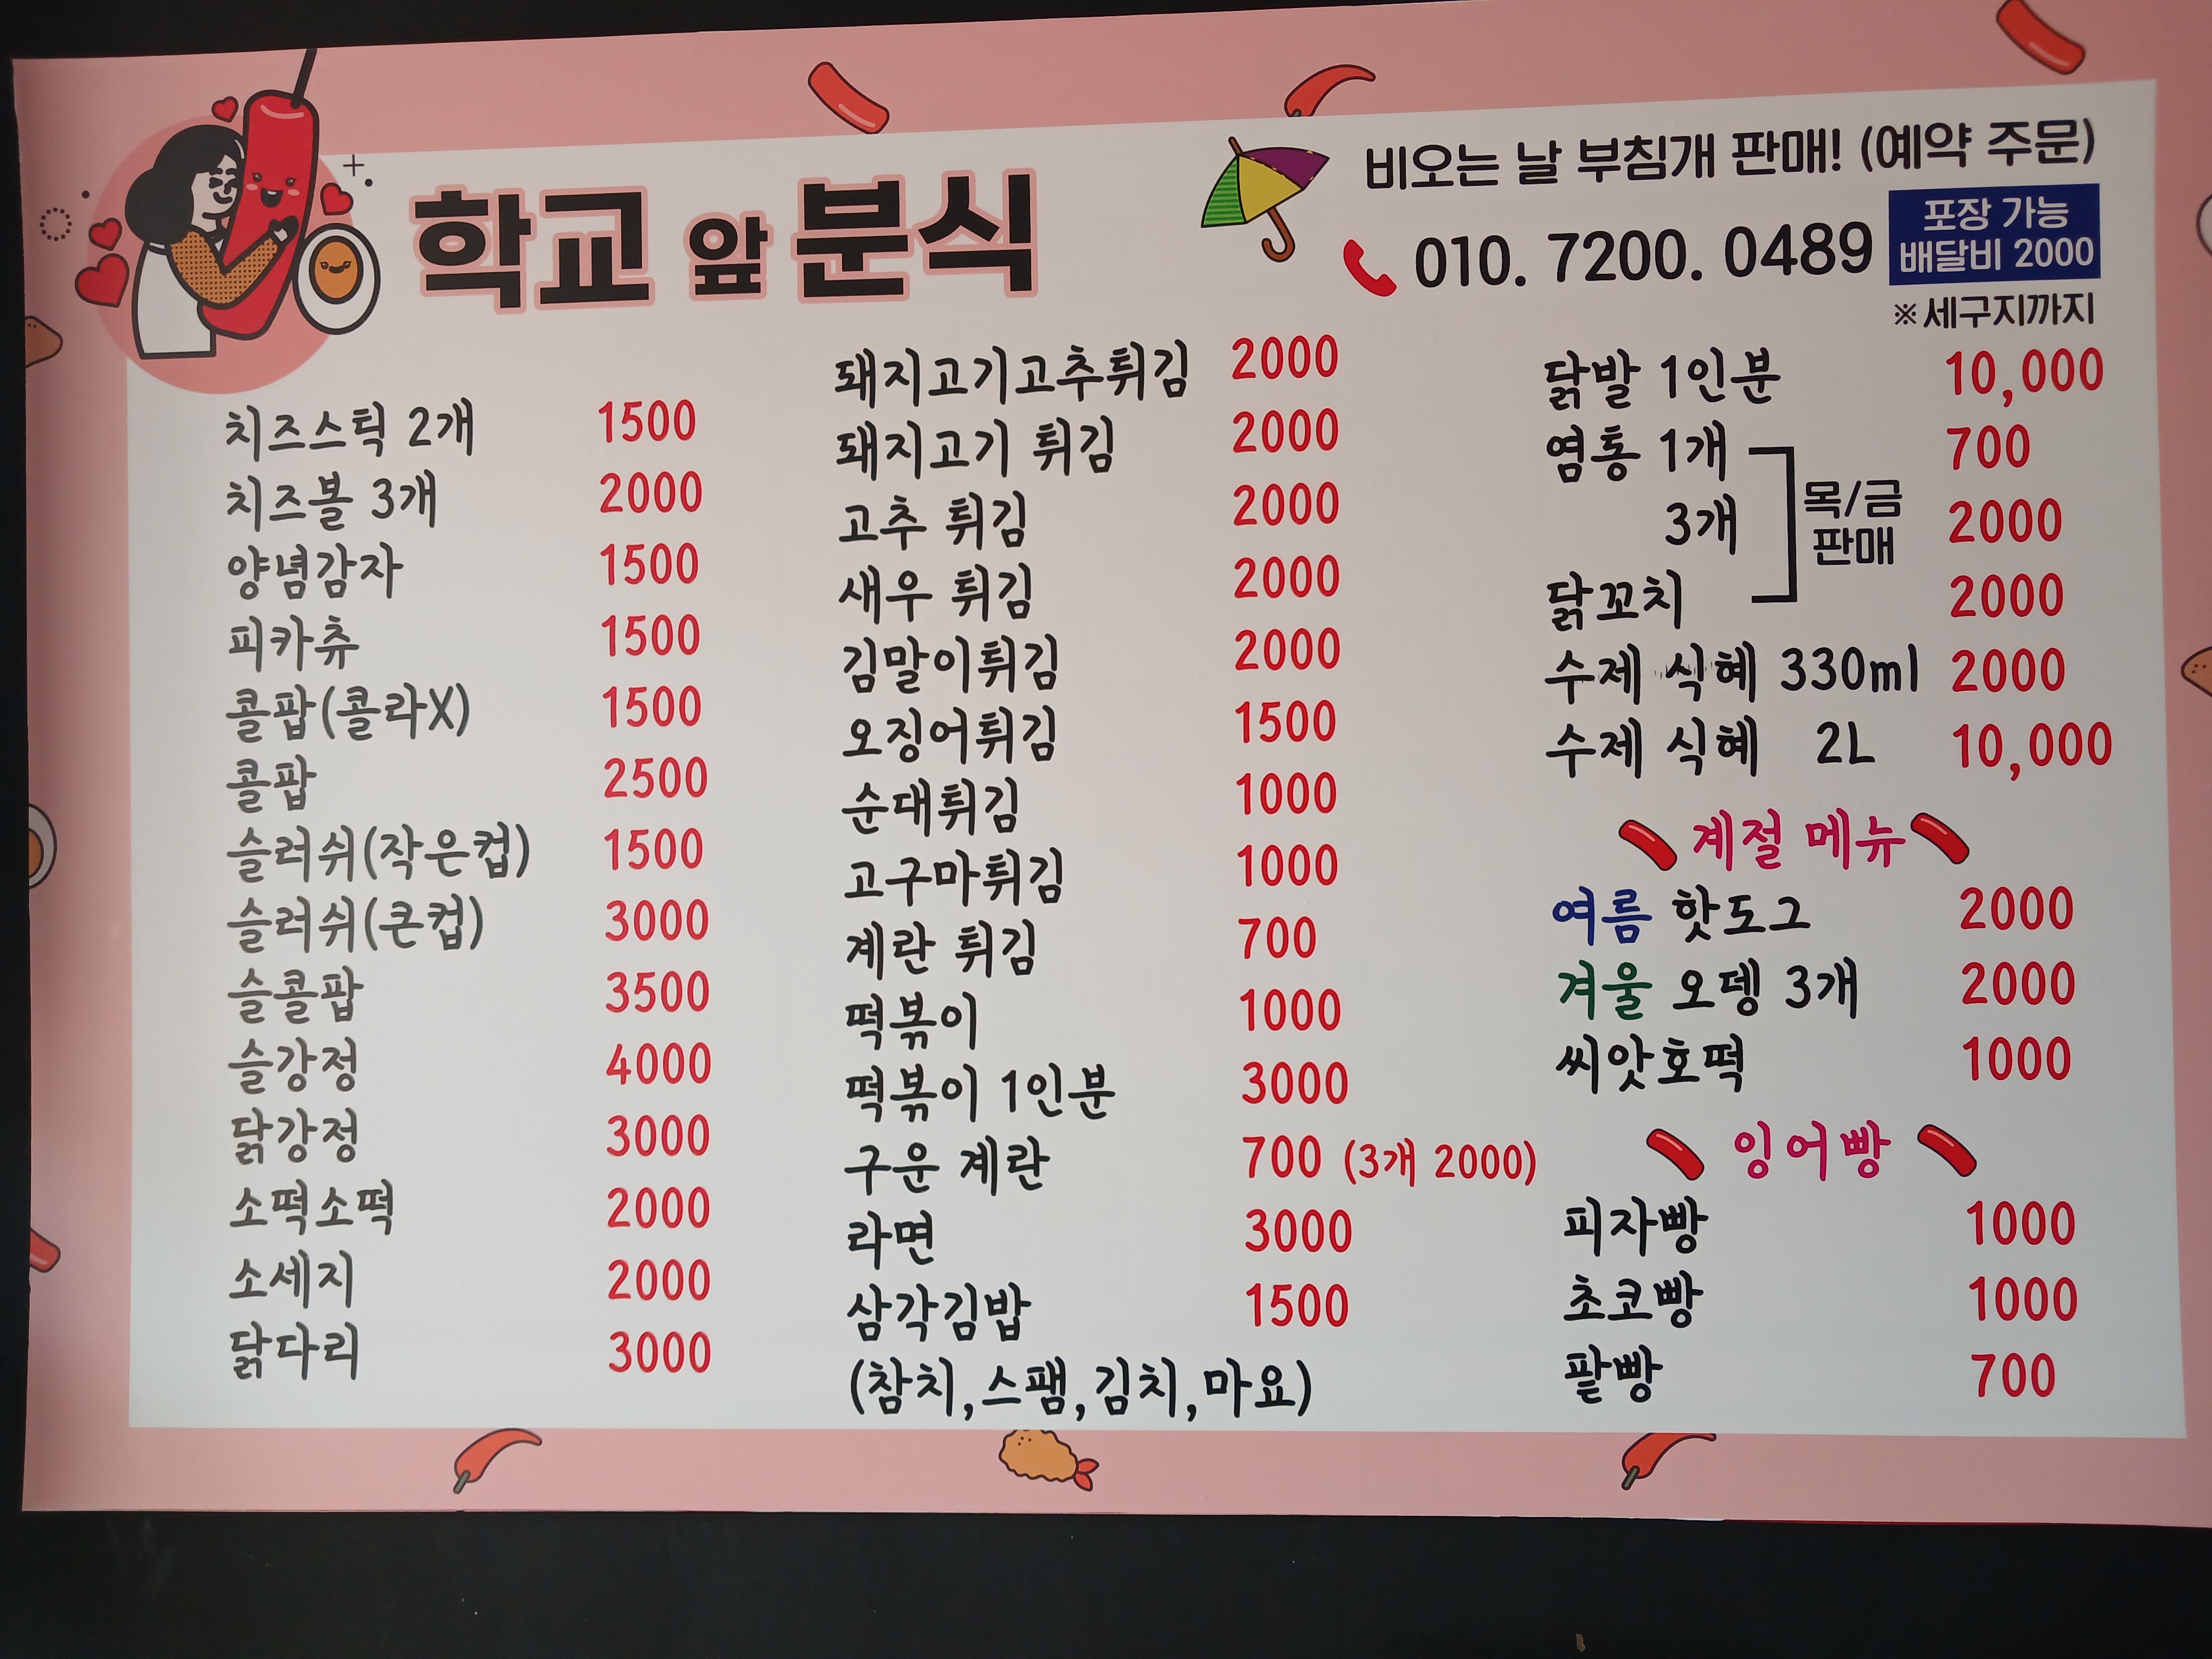 학교 앞 분식
비오는 날 부침개 판매! (예약 주문)
010. 7200. 0489
포장 가능
배달비 2000
※세구지까지
치즈스틱 2개 1500
치즈볼 3개 2000
양념감자 1500
피카츄 1500
콜팝(콜라X) 1500
콜팝 2500
슬러쉬(작은컵) 1500
슬러쉬(큰컵) 3000
슬콜팝 3500
슬강정 4000
닭강정 3000
소떡소떡 2000
소세지 2000
닭다리 3000
돼지고기고추튀김 2000
돼지고기 튀김 2000
고추 튀김 2000
새우 튀김 2000
김말이튀김 2000
오징어튀김 1500
순대튀김 1000
고구마튀김 1000
계란 튀김 700
떡볶이 1000
떡볶이 1인분 3000
구운 계란 700 (3개 2000)
라면 3000
삼각김밥 1500
(참치,스팸,김치,마요)
닭발 1인분 10,000
염통 1개 700
3개 2000
목/금
판매
닭꼬치 2000
수제 식혜 330ml 2000
수제 식혜 2L 10,000
계절 메뉴
여름 핫도그 2000
겨울 오뎅 3개 2000
씨앗호떡 1000
잉어빵
피자빵 1000
초코빵 1000
팥빵 700